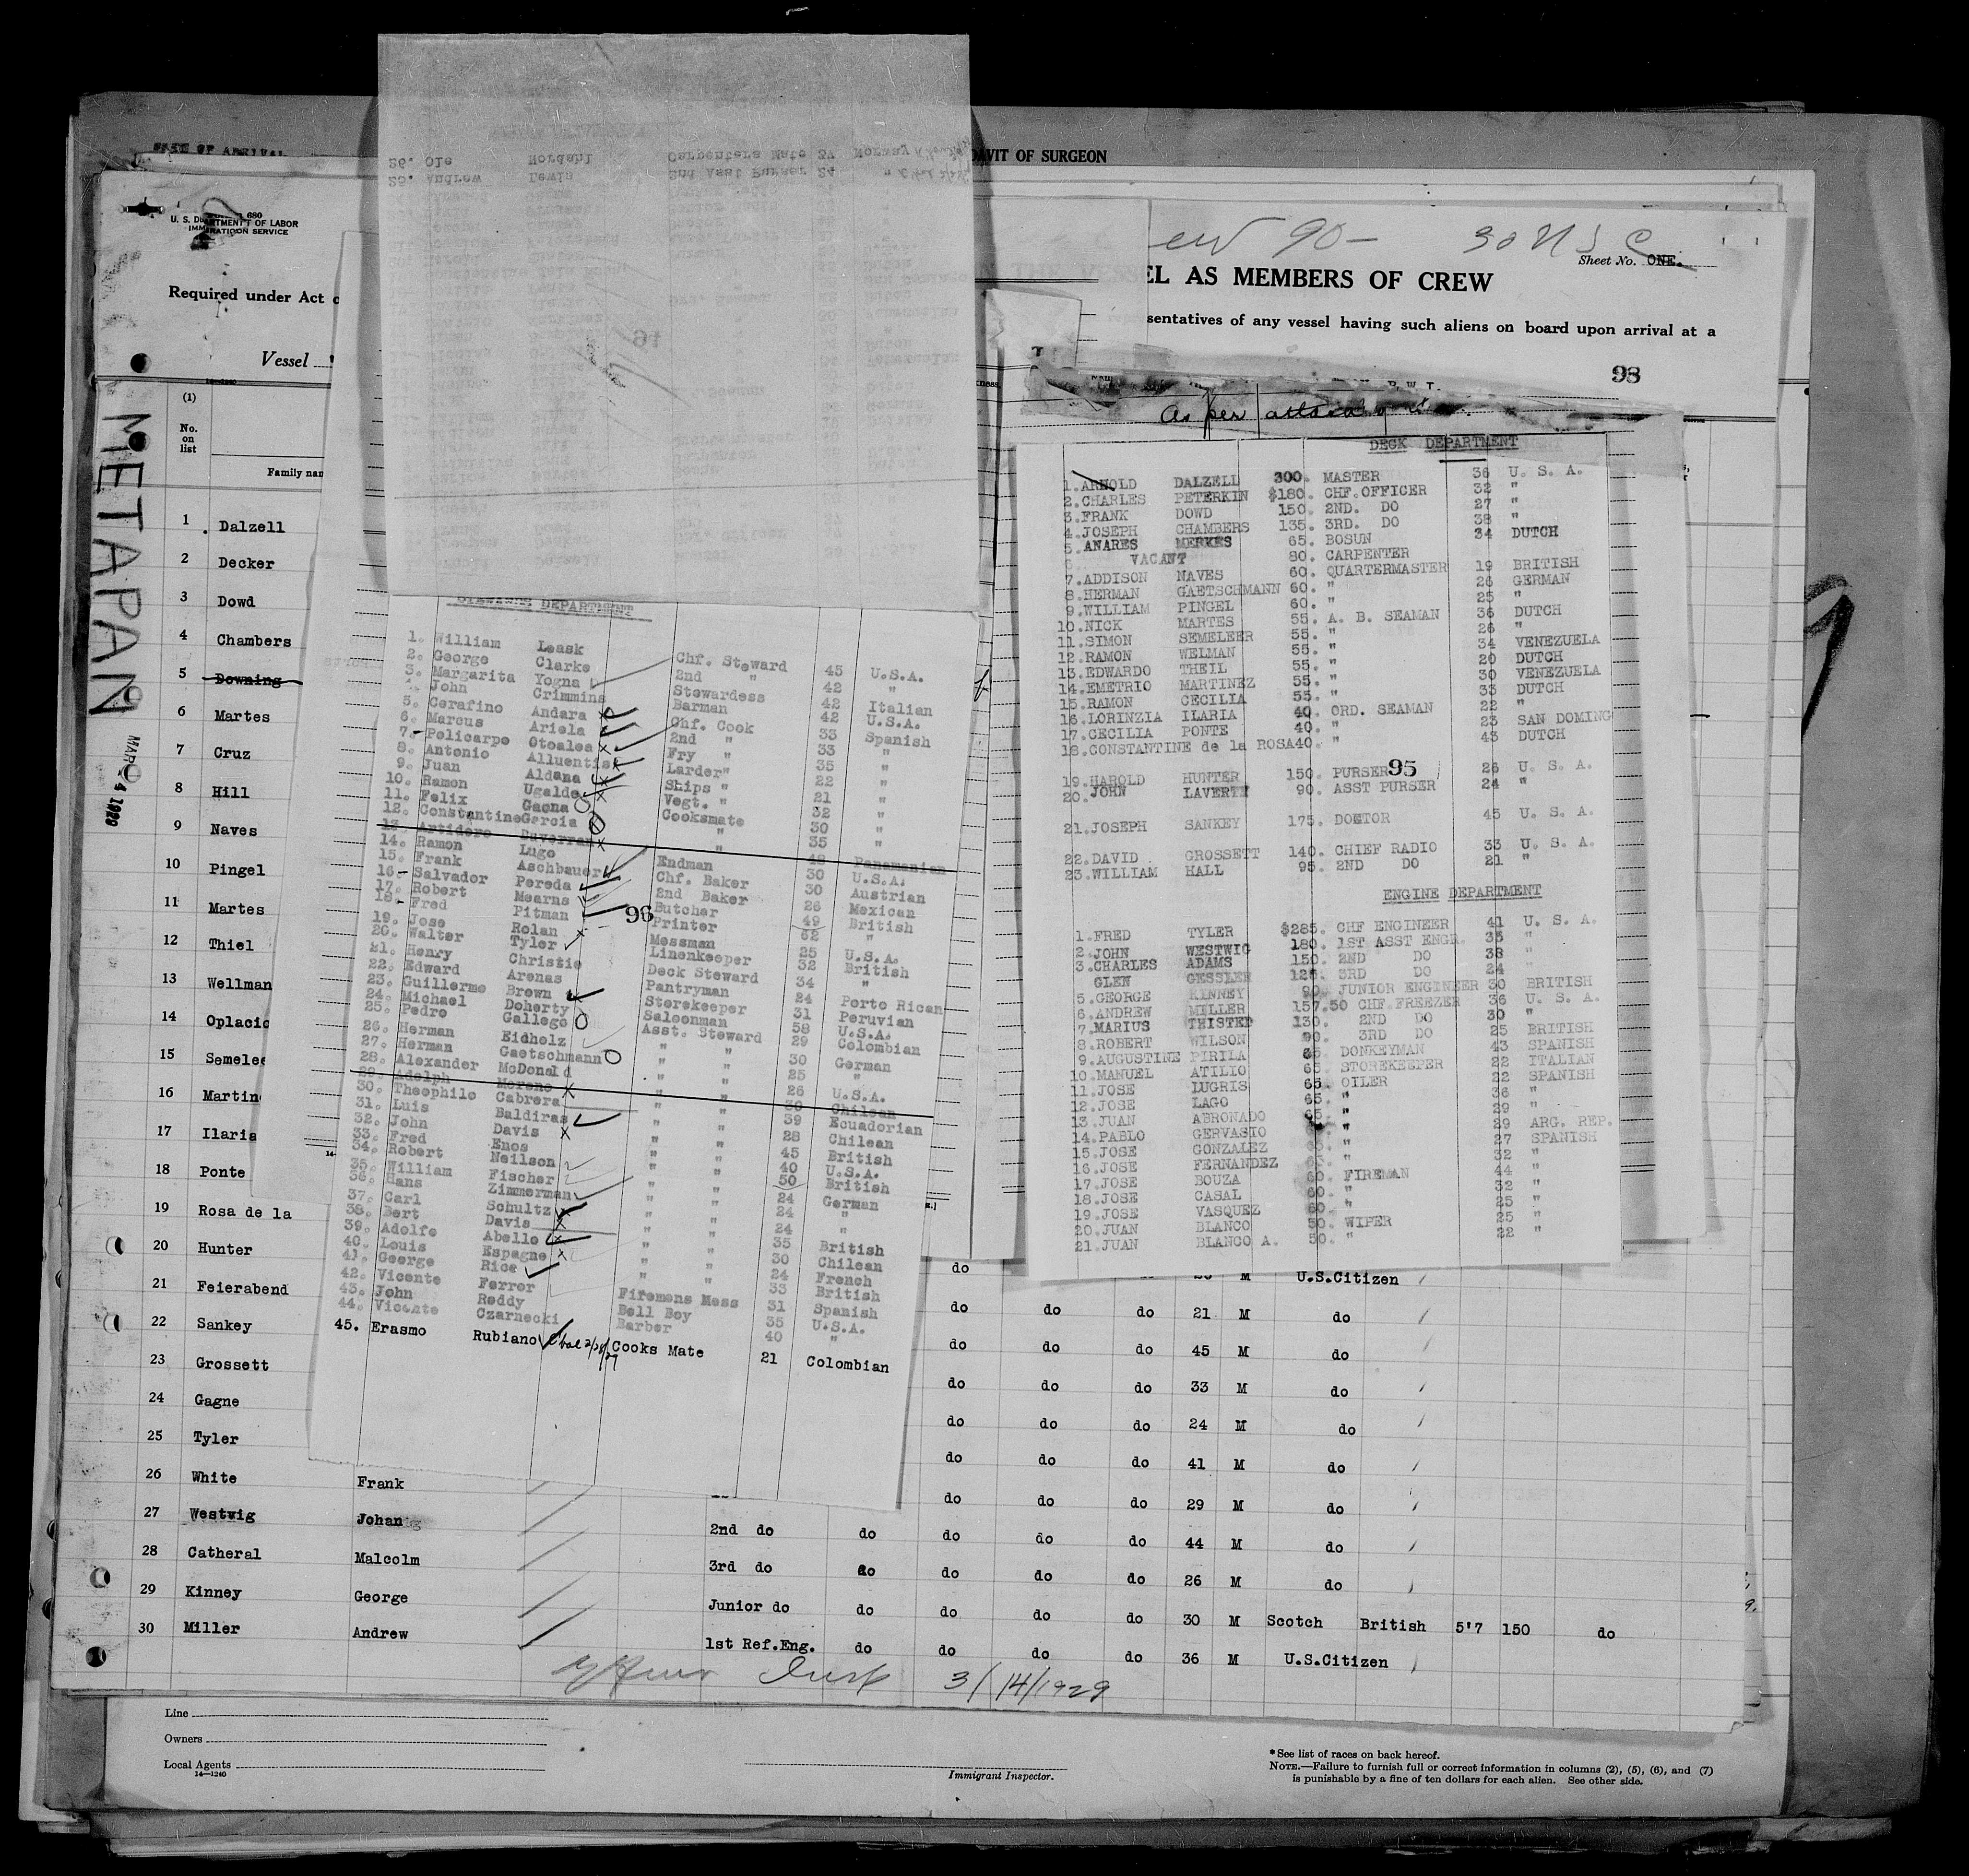 DATE OF ARRIVAL
AVIT OF SURGEON
680
U. S. DEPARTMENT OF LABOR
IMMIGRATION SERVICE
Required under Act
Vessel
14-1240
METAPAN
MAR 4 1929
90- 30 U S C
Sheet No. ONE.
EL AS MEMBERS OF CREW
sentatives of any vessel having such aliens on board upon arrival at a
98
As per attach
(1)
No.
on
list
Family nam
1 Dalzell
2 Decker
3 Dowd
4 Chambers
5 Downing
6 Martes
7 Cruz
8 Hill
9 Naves
10 Pingel
11 Martes
12 Thiel
13 Wellman
14 Oplacio
15 Semelee
16 Martin
17 Ilaria
18 Ponte
19 Rosa de la
20 Hunter
21 Feierabend
22 Sankey
23 Grossett
24 Gagne
25 Tyler
26 White Frank
27 Westwig Johan
28 Catheral Malcolm
29 Kinney George
30 Miller Andrew
26. Ole Nordahl Carpenters Mate 37 Norway
25. Andrew Lewin 2nd Asst Purser 24 "
DEPARTMENT
1. William Leask Chf. Steward 45 U.S.A.
2. George Clarke 2nd " 42 "
3. Margarita Yogna Stewardess 42 Italian
John Crimmins Barman 42 U.S.A.
5. Cerafino Andara Chf. Cook 33 Spanish
6. Marcus Ariela 2nd " 33 "
7. Policarpo Otoalea Fry " 35 "
8. Antonio Alluentis Larder" 22 "
9. Juan Aldana Ships " 21 "
10. Ramon Ugalde Vegt. " 32 "
11. Felix Gaona Cooksmate 30 "
12. Constantine Garcia " 35 "
13. Artidoro Duverran 48 Panamanian
14. Ramon Lugo Endman 30 U.S.A.
15. Frank Aschbauer Chf. Baker 30 Austrian
16. Salvador Pereda 2nd Baker 26 Mexican
17. Robert Mearns Butcher 49 British
18. Fred Pitman Printer 52 "
96
19. Jose Rolan Messman 25 U.S.A.
20. Walter Tyler Linenkeeper 32 British
21. Henry Christie Deck Steward 34 "
22. Edward Arenas Pantryman 24 Porto Rican
23. Guillermo Brown Storekeeper 31 Peruvian
24. Michael Doherty Saloonman 58 U.S.A.
25. Pedro Gallego Asst. Steward 29 Colombian
26. Herman Eidholz " " 30 German
27. Herman Gaetschmann " " 25 "
28. Alexander McDonald " " 26 U.S.A.
29. Adolph Moreno " " 30 Chilean
30. Theophilo Cabrera " " 39 Ecuadorian
31. Luis Baldiras " " 28 Chilean
32. John Davis " " 45 British
33. Fred Enos " " 40 U.S.A.
34. Robert Neilson " " 50 British
35. William Fischer " " 24 German
36. Hans Zimmerman " " 24 "
37. Carl Schultz " " 24 "
38. Bert Davis " " 35 British
39. Adolfo Abello " " 30 Chilean
40. Louis Espagne " " 24 French
41. George Rice " " 33 British
42. Vicente Ferrer Firemens Mess 31 Spanish
43. John Reddy Bell Boy 35 U.S.A.
44. Vicente Czarnecki Barber 40 "
45. Erasmo Rubiano Cooks Mate 21 Colombian
DECK DEPARTMENT
1. ARNOLD DALZELL 300. MASTER 36 U. S. A.
2. CHARLES PETERKIN $180. CHF. OFFICER 32 "
3. FRANK DOWD 150. 2ND. DO 27 "
4. JOSEPH CHAMBERS 135. 3RD. DO 38 "
5. ANARES MERKES 65. BOSUN 34 DUTCH
VACANT 80. CARPENTER
7. ADDISON NAVES 60. QUARTERMASTER 19 BRITISH
8. HERMAN GAETSCHMANN 60. " 26 GERMAN
9. WILLIAM PINGEL 60. " 25 "
10. NICK MARTES 55. A. B. SEAMAN 36 DUTCH
11. SIMON SEMELEER 55. " 26 "
12. RAMON WELMAN 55. " 34 VENEZUELA
13. EDWARDO THEIL 55. " 20 DUTCH
14. EMETRIO MARTINEZ 55. " 30 VENEZUELA
15. RAMON CECILIA 55. " 33 DUTCH
16. LORINZIA ILARIA 40. ORD. SEAMAN 22 "
17. CECILIA PONTE 40. " 23 SAN DOMING
18. CONSTANTINE de la ROSA 40. " 43 DUTCH
19. HAROLD HUNTER 150. PURSER 26 U. S. A.
95
20. JOHN LAVERTY 90. ASST PURSER 24 "
21. JOSEPH SANKEY 175. DOCTOR 45 U. S. A.
22. DAVID GROSSETT 140. CHIEF RADIO 33 U. S. A.
23. WILLIAM HALL 95. 2ND DO 21 "
ENGINE DEPARTMENT
1. FRED TYLER $285. CHF ENGINEER 41 U. S. A.
2. JOHN WESTWIG 180. 1ST ASST ENGR. 35 "
3. CHARLES ADAMS 150. 2ND DO 38 "
GLEN GESSLER 125. 3RD DO 24 "
5. GEORGE KINNEY 90. JUNIOR ENGINEER 30 BRITISH
6. ANDREW MILLER 157.50 CHF. FREEZER 36 U. S. A.
7. MARIUS THISTED 130. 2ND DO 30 "
8. ROBERT WILSON 90. 3RD DO 25 BRITISH
9. AUGUSTINE PIRILA 65. DONKEYMAN 43 SPANISH
10. MANUEL ATILIO 65. STOREKEEPER 22 ITALIAN
11. JOSE LUGRIS 65. OILER 22 SPANISH
12. JOSE LAGO 65. " 36 "
13. JUAN ABRONADO 65. " 29 "
14. PABLO GERVASIO " 29 ARG. REP.
15. JOSE GONZALEZ " 27 SPANISH
16. JOSE FERNANDEZ " 32 "
17. JOSE BOUZA 60. FIREMAN 44 "
18. JOSE CASAL 60. " 32 "
19. JOSE VASQUEZ 60. " 25 "
20. JUAN BLANCO 50. WIPER 25 "
21. JUAN BLANCO A. 50. " 22 "
do M U.S.Citizen
do do do 21 M do
do do do 45 M do
do do do 33 M do
do do do 24 M do
do do do 41 M do
do do do 29 M do
2nd do do do do do 44 M do
3rd do do do do do 26 M do
Junior do do do do do 30 M Scotch British 5'7 150 do
1st Ref.Eng. do do do do 36 M U.S.Citizen
3/14/1929
Line
Owners
Local Agents
14-1240
Immigrant Inspector.
*See list of races on back hereof.
NOTE.—Failure to furnish full or correct information in columns (2), (5), (6), and (7)
is punishable by a fine of ten dollars for each alien. See other side.